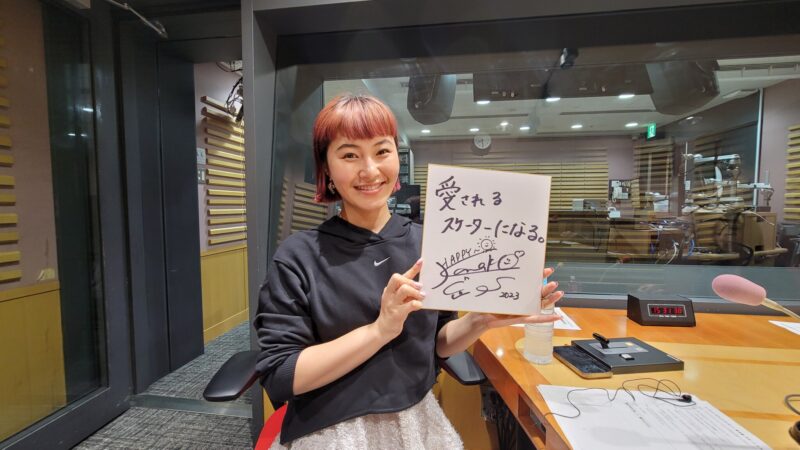 愛される
スケーターになる。
HAPPY~
2023
15:31:10